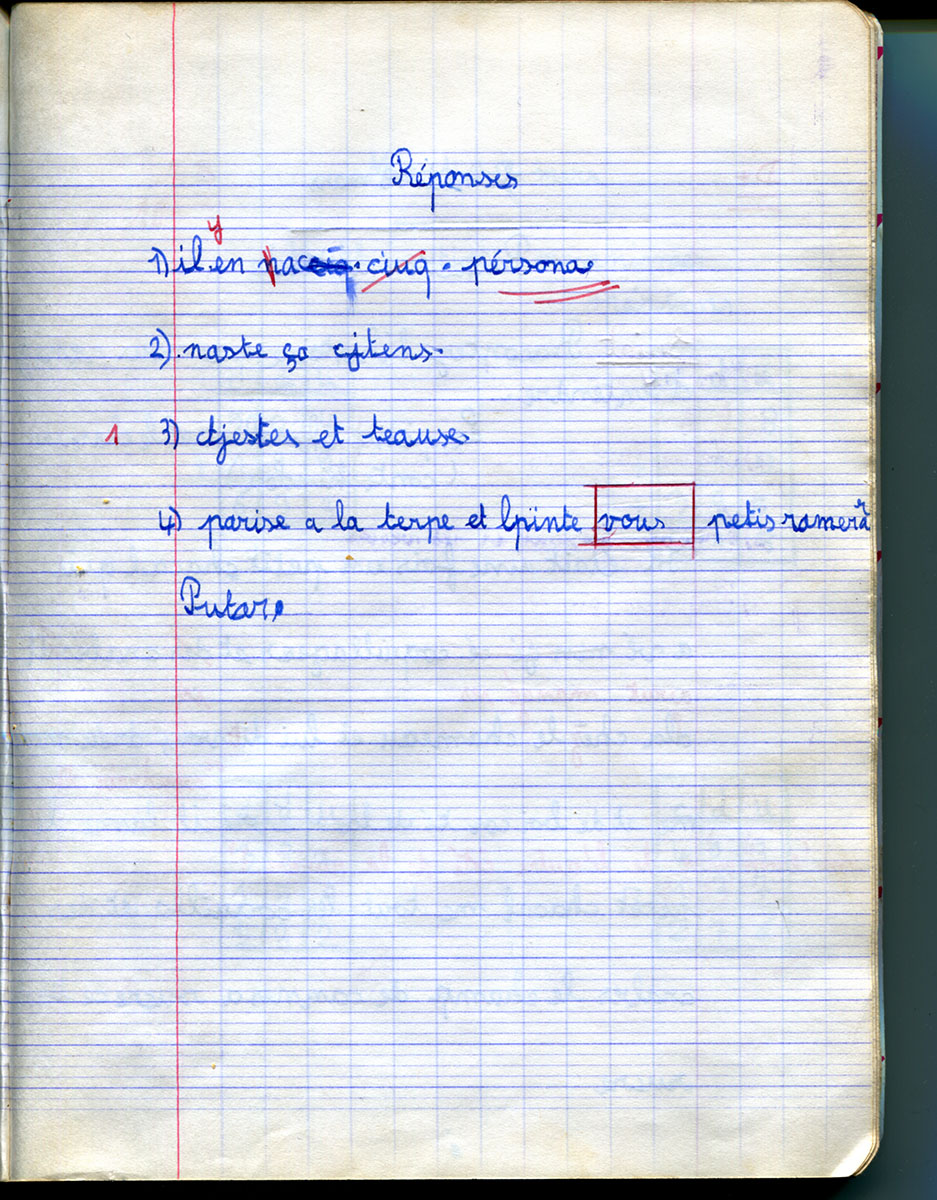 Réponses
y
1) il en na cinq. pérsona
2) naste ça cjtens.
1 3) ctjestes et teauses
4) parise a la terpe et lpinte vous petis ramera
Putar